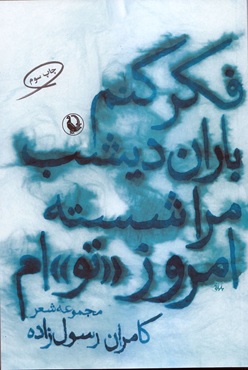 چاپ سوم
فکر کنم
باران دیشب
مرا شسته
امروز «تو»ام
مجموعه شعر
کامران رسول‌زاده